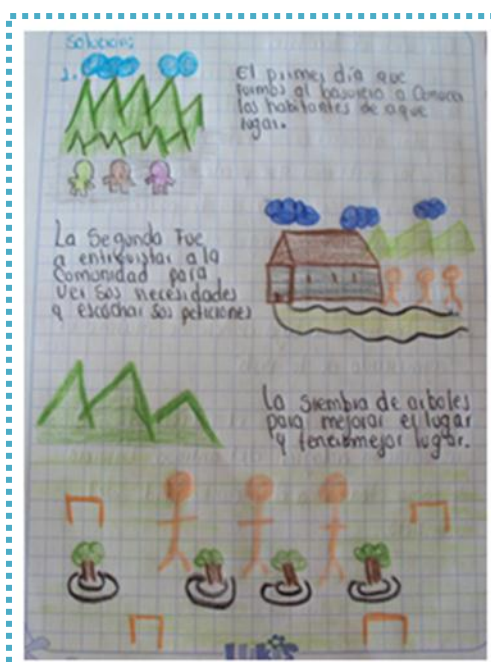 Solucion:
1.
El primer dia que
fuimos al basurero a Conocer
los habitantes de aque
lugar.
La Segundo Fue
a entrevistar a la
Comunidad para
ver sos necesidades
y escochar sos peticiones
La siembra de arboles
para mejorar el lugar
y tener mejor lugar.